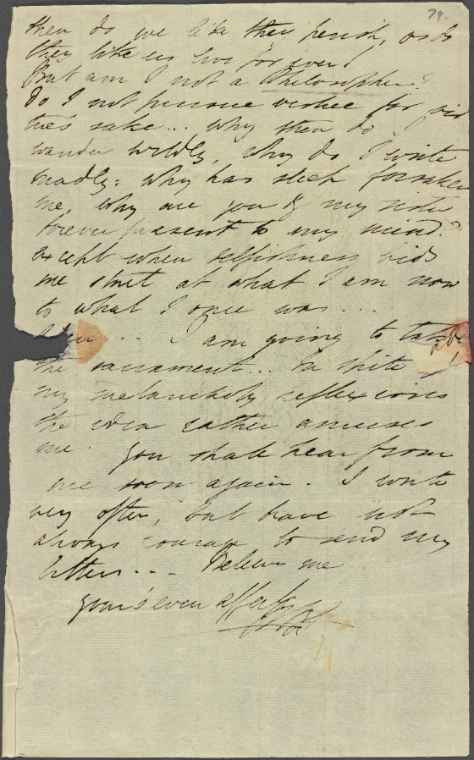 79.
then do we like them perish, or do
they like us live for ever!
But am I not a Philosopher?
Do I not pursue virtue for vir
tue's sake... Why then do I
wander wildly, why do I write
madly; why has sleep forsaken
me, why are you & my sister
forever present to my mind?
except when selfishness bids
me start at what I am now
to what I once was...
I am going to take
the sacrament... In spite of
my melancholy reflexions
the idea rather amuses
me. You shall hear from
me soon again. I write
very often, but have not
always courage to send my
letters... Believe me
your's ever affect